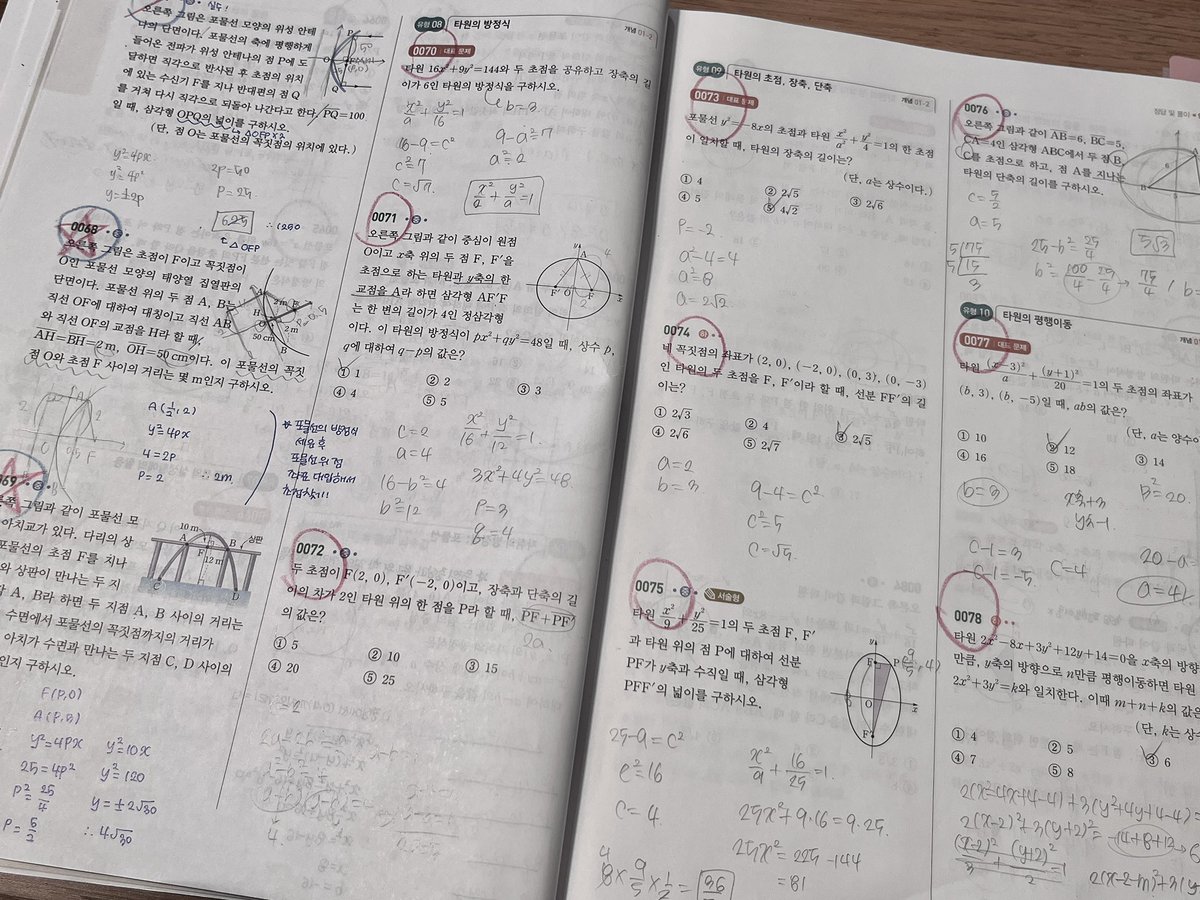 오른쪽 그림은 포물선 모양의 위성 안테
나의 단면이다. 포물선의 축에 평행하게
들어온 전파가 위성 안테나의 점 P에 도
달하면 직각으로 반사된 후 초점의 위치
에 있는 수신기 F를 지나 반대편의 점 Q
를 거쳐 다시 직각으로 되돌아 나간다고 한다. PQ=100
일 때, 삼각형 OPQ의 넓이를 구하시오.
(단, 점 O는 포물선의 꼭짓점의 위치에 있다.)
y²=4px
y²=4p²
y=±2p
2p=50
P=25
625
∴1250
△OFP
0068
오른쪽 그림은 초점이 F이고 꼭짓점이
O인 포물선 모양의 태양열 집열판의
단면이다. 포물선 위의 두 점 A, B는
직선 OF에 대하여 대칭이고 직선 AB
와 직선 OF의 교점을 H라 할 때,
AH=BH=2 m, OH=50 cm이다. 이 포물선의 꼭짓
점 O와 초점 F 사이의 거리는 몇 m인지 구하시오.
A(½, 2)
y²=4px
4=2p
P=2 ∴ 2m
* 포물선의 방정식
세운 후
포물선 위 점
좌표 대입해서
초점찾기!!
069
른쪽 그림과 같이 포물선 모
아치교가 있다. 다리의 상
포물선의 초점 F를 지나
와 상판이 만나는 두 지
A, B라 하면 두 지점 A, B 사이의 거리는
수면에서 포물선의 꼭짓점까지의 거리가
아치가 수면과 만나는 두 지점 C, D 사이의
인지 구하시오.
10 m
상판
12 m
F(P,0)
y²=4px
25=4p²
P²=25/4
P=5/2
y²=10x
y²=120
y=±2√30
∴4√30
유형 08 타원의 방정식 개념 01-2
0070 대표 문제
타원 16x²+9y²=144와 두 초점을 공유하고 장축의 길
이가 6인 타원의 방정식을 구하시오.
b=3
16-9=c²
c²=7
c=√7
9-a²=7
a²=2
0071
오른쪽 그림과 같이 중심이 원점
O이고 x축 위의 두 점 F, F'을
초점으로 하는 타원과 y축의 한
교점을 A라 하면 삼각형 AF'F
는 한 변의 길이가 4인 정삼각형
이다. 이 타원의 방정식이 px²+qy²=48일 때, 상수 p,
q에 대하여 q-p의 값은?
① 1 ② 2 ③ 3
④ 4 ⑤ 5
c=2
a=4
16-b²=4
b²=12
x²/16+y²/12=1
3x²+4y²=48
P=3
q=4
0072
두 초점이 F(2, 0), F'(-2, 0)이고, 장축과 단축의 길
이의 차가 2인 타원 위의 한 점을 P라 할 때, PF+PF'
의 값은?
2a
① 5 ② 10 ③ 15
④ 20 ⑤ 25
유형 09 타원의 초점, 장축, 단축 개념 01-2
0073 대표 문제
포물선 y²=-8x의 초점과 타원 x²/a²+y²/4=1의 한 초점
이 일치할 때, 타원의 장축의 길이는? (단, a는 상수이다.)
① 4 ② 2√5 ③ 2√6
④ 5 ⑤ 4√2
P=-2
a²-4=4
a²=8
a=2√2
0074
네 꼭짓점의 좌표가 (2, 0), (-2, 0), (0, 3), (0, -3)
인 타원의 두 초점을 F, F'이라 할 때, 선분 FF'의 길
이는?
① 2√3 ② 4 ③ 2√5
④ 2√6 ⑤ 2√7
a=2
b=3
9-4=c²
c²=5
c=√5
0075 서술형
타원 x²/9+y²/25=1의 두 초점 F, F'
과 타원 위의 점 P에 대하여 선분
PF가 y축과 수직일 때, 삼각형
PFF'의 넓이를 구하시오.
25-9=c²
c²=16
c=4.
x²/9+16/25=1.
25x²+9·16=9·25.
25x²=225-144
=81
정답 및 풀이
0076
오른쪽 그림과 같이 AB=6, BC=5,
CA=4인 삼각형 ABC에서 두 점 B,
C를 초점으로 하고, 점 A를 지나는
타원의 단축의 길이를 구하시오.
c=5/2
a=5
25-b²=25/4
b²=100/4-25/4→75/4
5√3
유형 10 타원의 평행이동
0077 대표 문제
타원 (x-3)²/a+(y+1)²/20=1의 두 초점의 좌표가
(b, 3), (b, -5)일 때, ab의 값은?
(단, a는 양수
① 10 ② 12 ③ 14
④ 16 ⑤ 18
b=3
c-1=3
-c-1=-5
c=4
20-a
a=4
0078
타원 2x²-8x+3y²+12y+14=0을 x축의 방향
만큼, y축의 방향으로 n만큼 평행이동하면 타원
2x²+3y²=k와 일치한다. 이때 m+n+k의 값은
(단, k는 상수
① 4 ② 5 ③ 6
④ 7 ⑤ 8
2(x²-4x+4-4)+3(y²+4y+4-4)=
2(x-2)²+3(y+2)²=-14+8+12→6